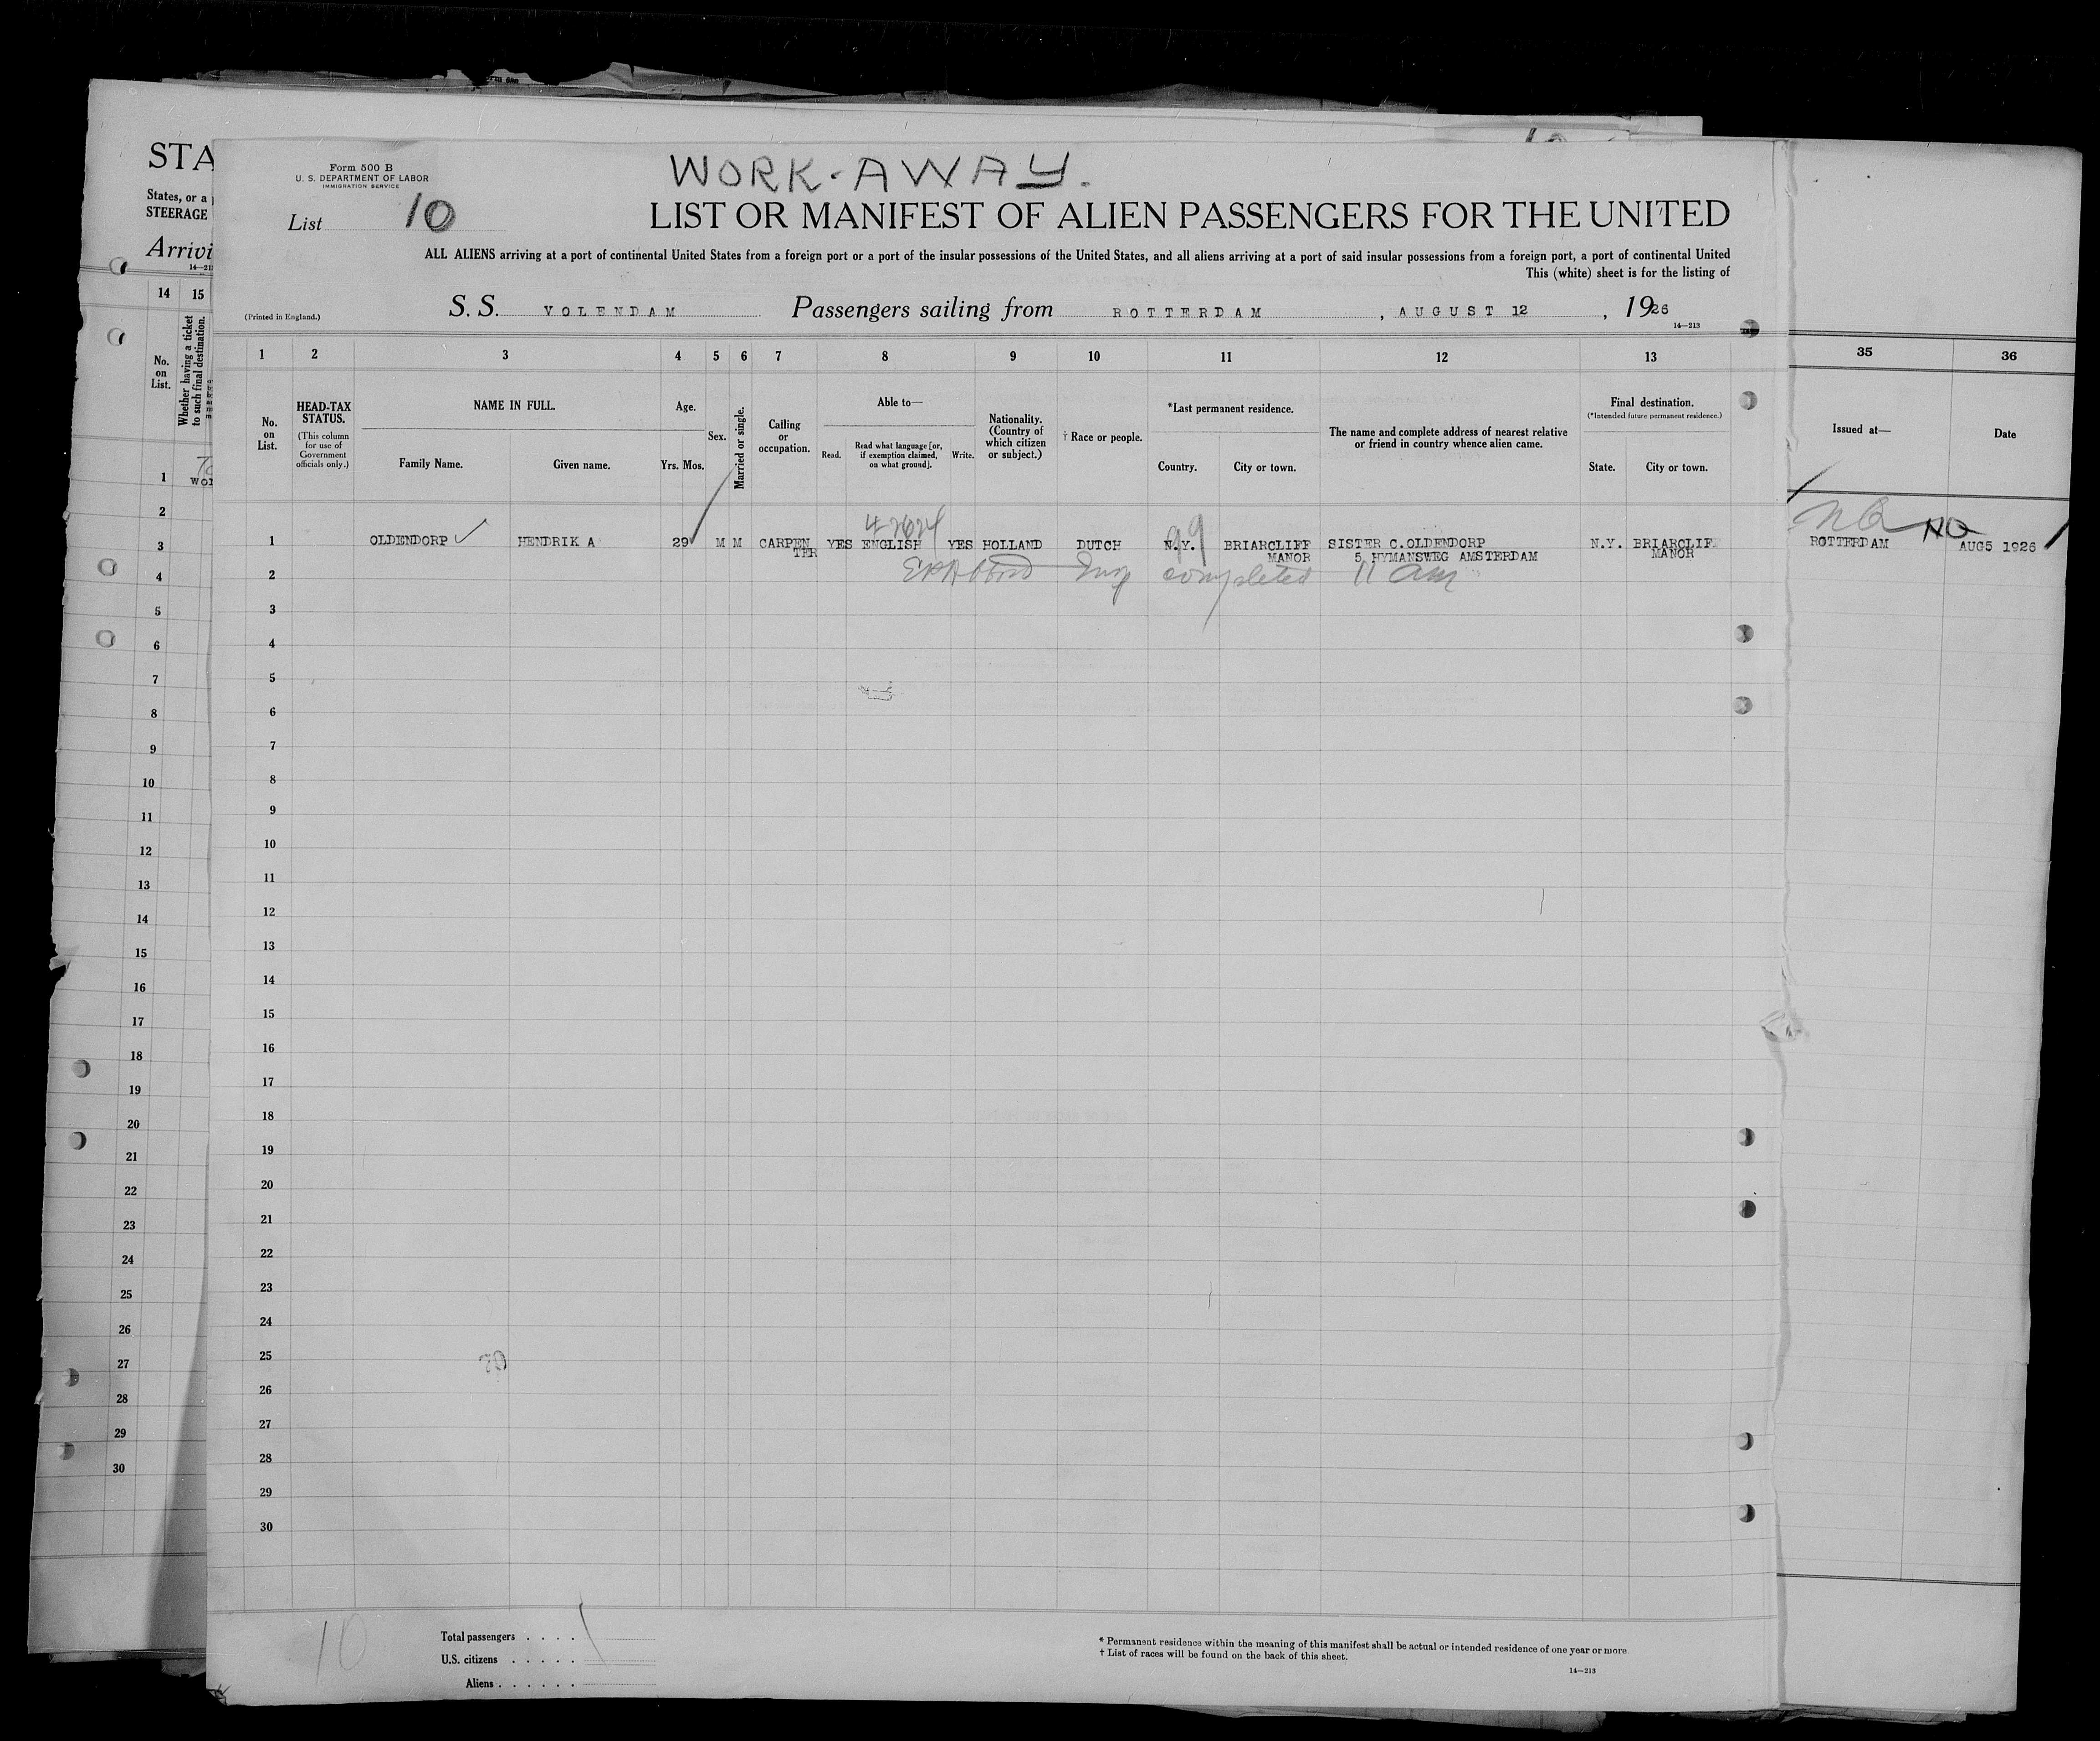 WORK-AWAY.
Form 500 B
U. S. DEPARTMENT OF LABOR
IMMIGRATION SERVICE
List 10
LIST OR MANIFEST OF ALIEN PASSENGERS FOR THE UNITED
ALL ALIENS arriving at a port of continental United States from a foreign port or a port of the insular possessions of the United States, and all aliens arriving at a port of said insular possessions from a foreign port, a port of continental United
This (white) sheet is for the listing of
(Printed in England.)
S. S. VOLENDAM Passengers sailing from ROTTERDAM, AUGUST 12, 1926
14—213
1 2 3 4 5 6 7 8 9 10 11 12 13
No. on List.
HEAD-TAX STATUS.
(This column for use of Government officials only.)
NAME IN FULL.
Family Name. Given name.
Age.
Yrs. Mos.
Sex.
Married or single.
Calling or occupation.
Able to—
Read. Read what language [or, if exemption claimed, on what ground]. Write.
Nationality. (Country of which citizen or subject.)
† Race or people.
*Last permanent residence.
Country. City or town.
The name and complete address of nearest relative or friend in country whence alien came.
Final destination.
(*Intended future permanent residence.)
State. City or town.
1 OLDENDORP HENDRIK A 29 M M CARPEN YES ENGLISH YES HOLLAND DUTCH N.Y. BRIARCLIFF SISTER C.OLDENDORP N.Y. BRIARCLIF
TER MANOR 5 HYMANSWEG AMSTERDAM MANOR
2 completed 11 am
3
4
5
6
7
8
9
10
11
12
13
14
15
16
17
18
19
20
21
22
23
24
25
26
27
28
29
30
10
Total passengers . . . .
U.S. citizens . . . . .
Aliens . . . . . .
* Permanent residence within the meaning of this manifest shall be actual or intended residence of one year or more.
† List of races will be found on the back of this sheet.
14—213
STA
States, or a
STEERAGE
Arrivi
14—21
14 15
No. on List.
Whether having a ticket to such final destination.
1
2
3
4
5
6
7
8
9
10
11
12
13
14
15
16
17
18
19
20
21
22
23
24
25
26
27
28
29
30
35 36
Issued at— Date
NO
ROTTERDAM AUG5 1926